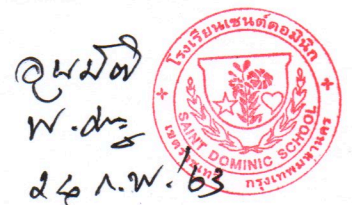 อนุมัติ
24 ก.พ. 63
โรงเรียนเซนต์ดอมินิก
SAINT DOMINIC SCHOOL
กรุงเทพมหานคร